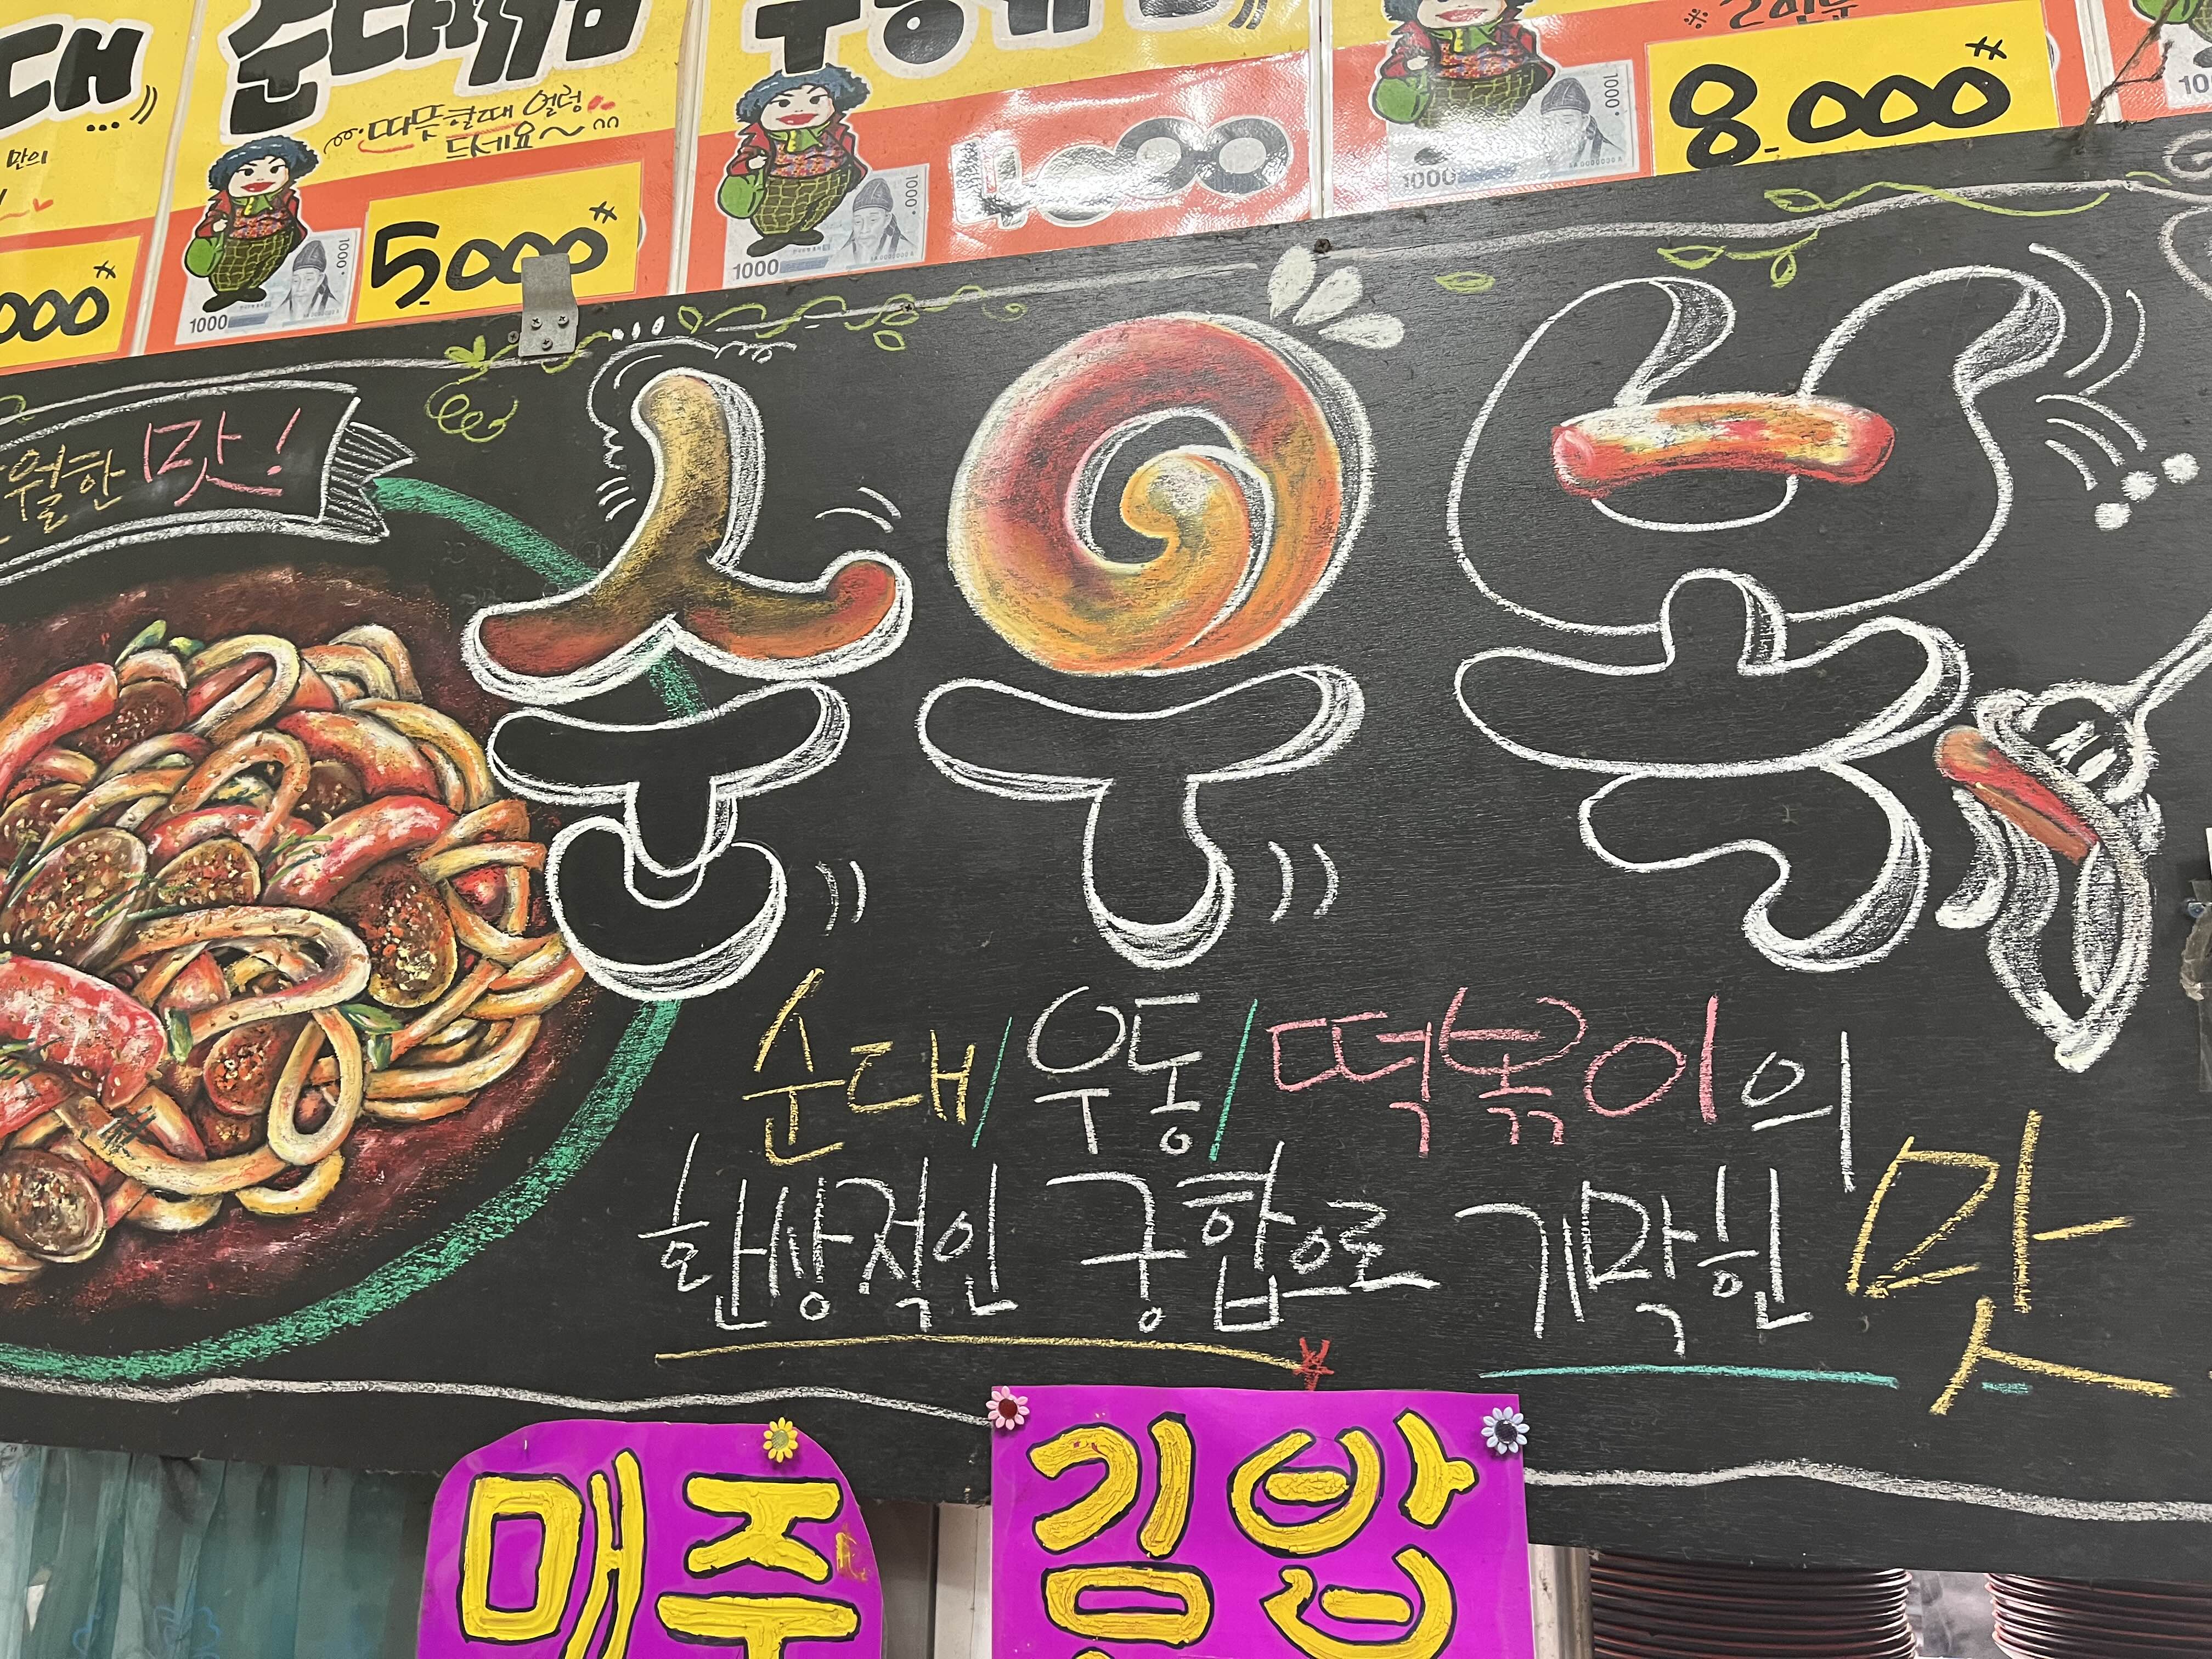 순대튀김
따뜻할때 얼렁
드세요~
만의
5000
1000
1000
4000
1000
1000
8,000
1000
월한 맛!
순우볶
순대/우동/떡볶이의
환상적인 궁합으로 기막힌 맛
맥주
김밥